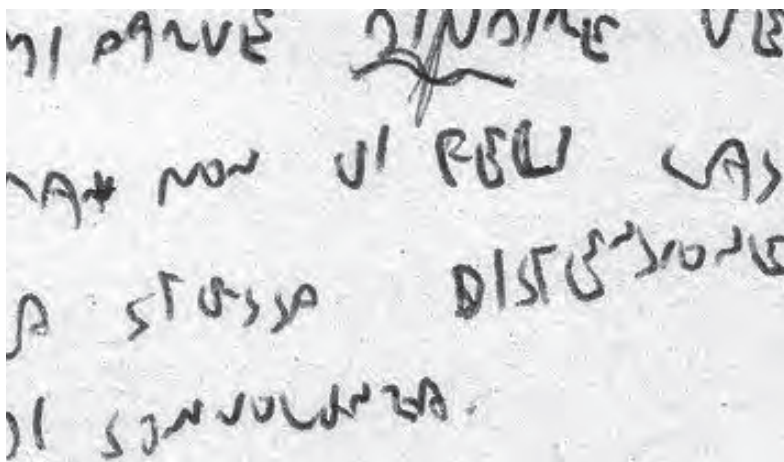 MI PARVE VE
MA NON VI FECI CAS
A STESSA DISTENSIONE
DI SONNOLENZA.